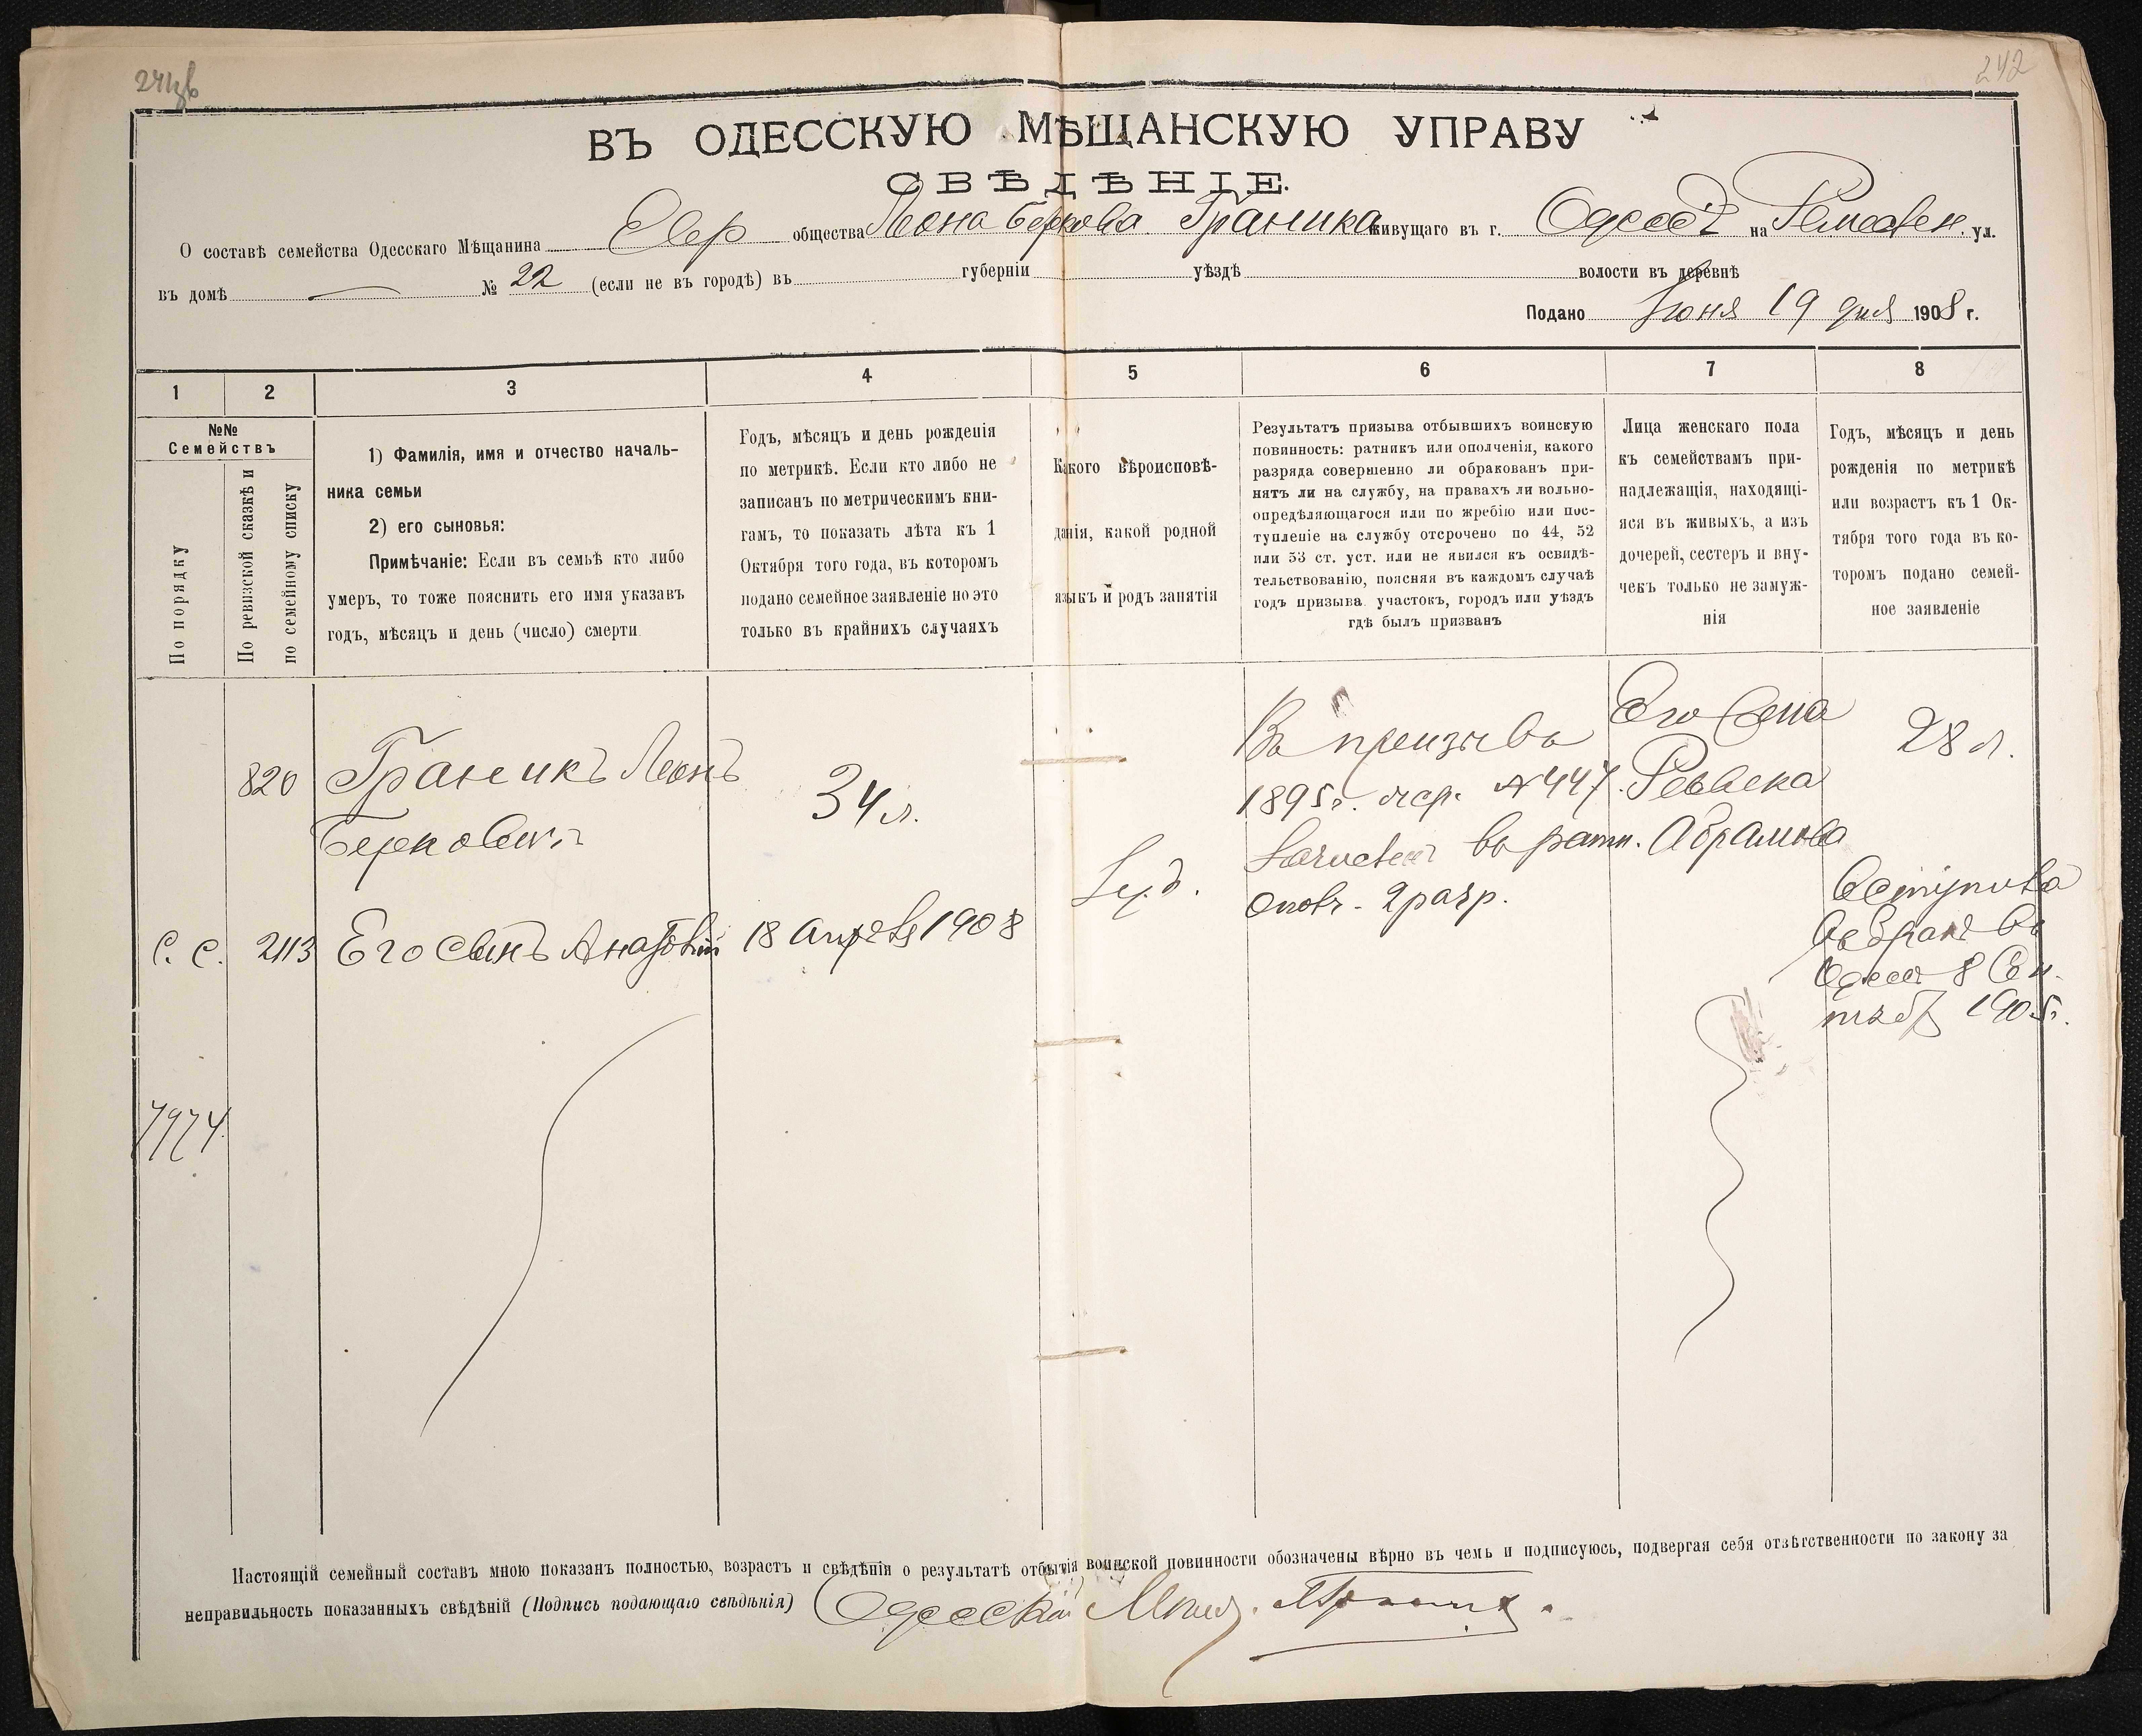 241об
242
ВЪ ОДЕССКУЮ МѢЩАНСКУЮ УПРАВУ
СВѢДѢНІЕ.
О составѣ семейства Одесскаго Мѣщанина Евр общества Леона Беркова Граника живущаго въ г. Одессѣ на Ремеслен. ул.
въ домѣ — № 22 (если не въ городѣ) въ губерніи уѣздѣ волости въ деревнѣ
Подано Іюня 19 дня 1908 г.
1 2 3 4 5 6 7 8
№№
Семействъ
По порядку
По ревизской сказкѣ и
по семейному списку
1) Фамилія, имя и отчество началь-
ника семьи
2) его сыновья:
Примѣчаніе: Если въ семьѣ кто либо
умеръ, то тоже пояснить его имя указавъ
годъ, мѣсяцъ и день (число) смерти
Годъ, мѣсяцъ и день рожденія
по метрикѣ. Если кто либо не
записанъ по метрическимъ кни-
гамъ, то показать лѣта къ 1
Октября того года, въ которомъ
подано семейное заявленіе но это
только въ крайнихъ случаяхъ
Какого вѣроисповѣ-
данія, какой родной
языкъ и родъ занятія
Результатъ призыва отбывшихъ воинскую
повинность: ратникъ или ополченія, какого
разряда совершенно ли обракованъ при-
нятъ ли на службу, на правахъ ли вольно-
опредѣляющагося или по жребію или пос-
тупленіе на службу отсрочено по 44, 52
или 53 ст. уст. или не явился къ освидѣ-
тельствованію, поясняя въ каждомъ случаѣ
годъ призыва участокъ, городъ или уѣздъ
гдѣ былъ призванъ
Лица женскаго пола
къ семействамъ при-
надлежащія, находящі-
яся въ живыхъ, а изъ
дочерей, сестеръ и вну-
чекъ только не замуж-
нія
Годъ, мѣсяцъ и день
рожденія по метрикѣ
или возрастъ къ 1 Ок-
тября того года въ ко-
торомъ подано семей-
ное заявленіе
820 Граникъ Леонъ
Берковичъ
34 л.
Іуд.
Въ призывъ
1895г. жер. №447.
Зачислен въ ратн.
Ополч. 2 разр.
Его жена
Ревекка
Абрамова
28 л.
Вступила
въ бракъ въ
Одессѣ 8 Сен-
тябр 1905г.
С. С. 2113 Его сынъ Анатолій 18 апрѣля 1908
7974.
Настоящій семейный составъ мною показанъ полностью, возрастъ и свѣдѣніи о результатѣ отбытія воинской повинности обозначены вѣрно въ чемъ и подписуюсь, подвергая себя отвѣтственности по закону за
неправильность показанныхъ свѣдѣній (Подпись подающаго свѣдѣнія) Одесскій Мѣщ. Граникъ.